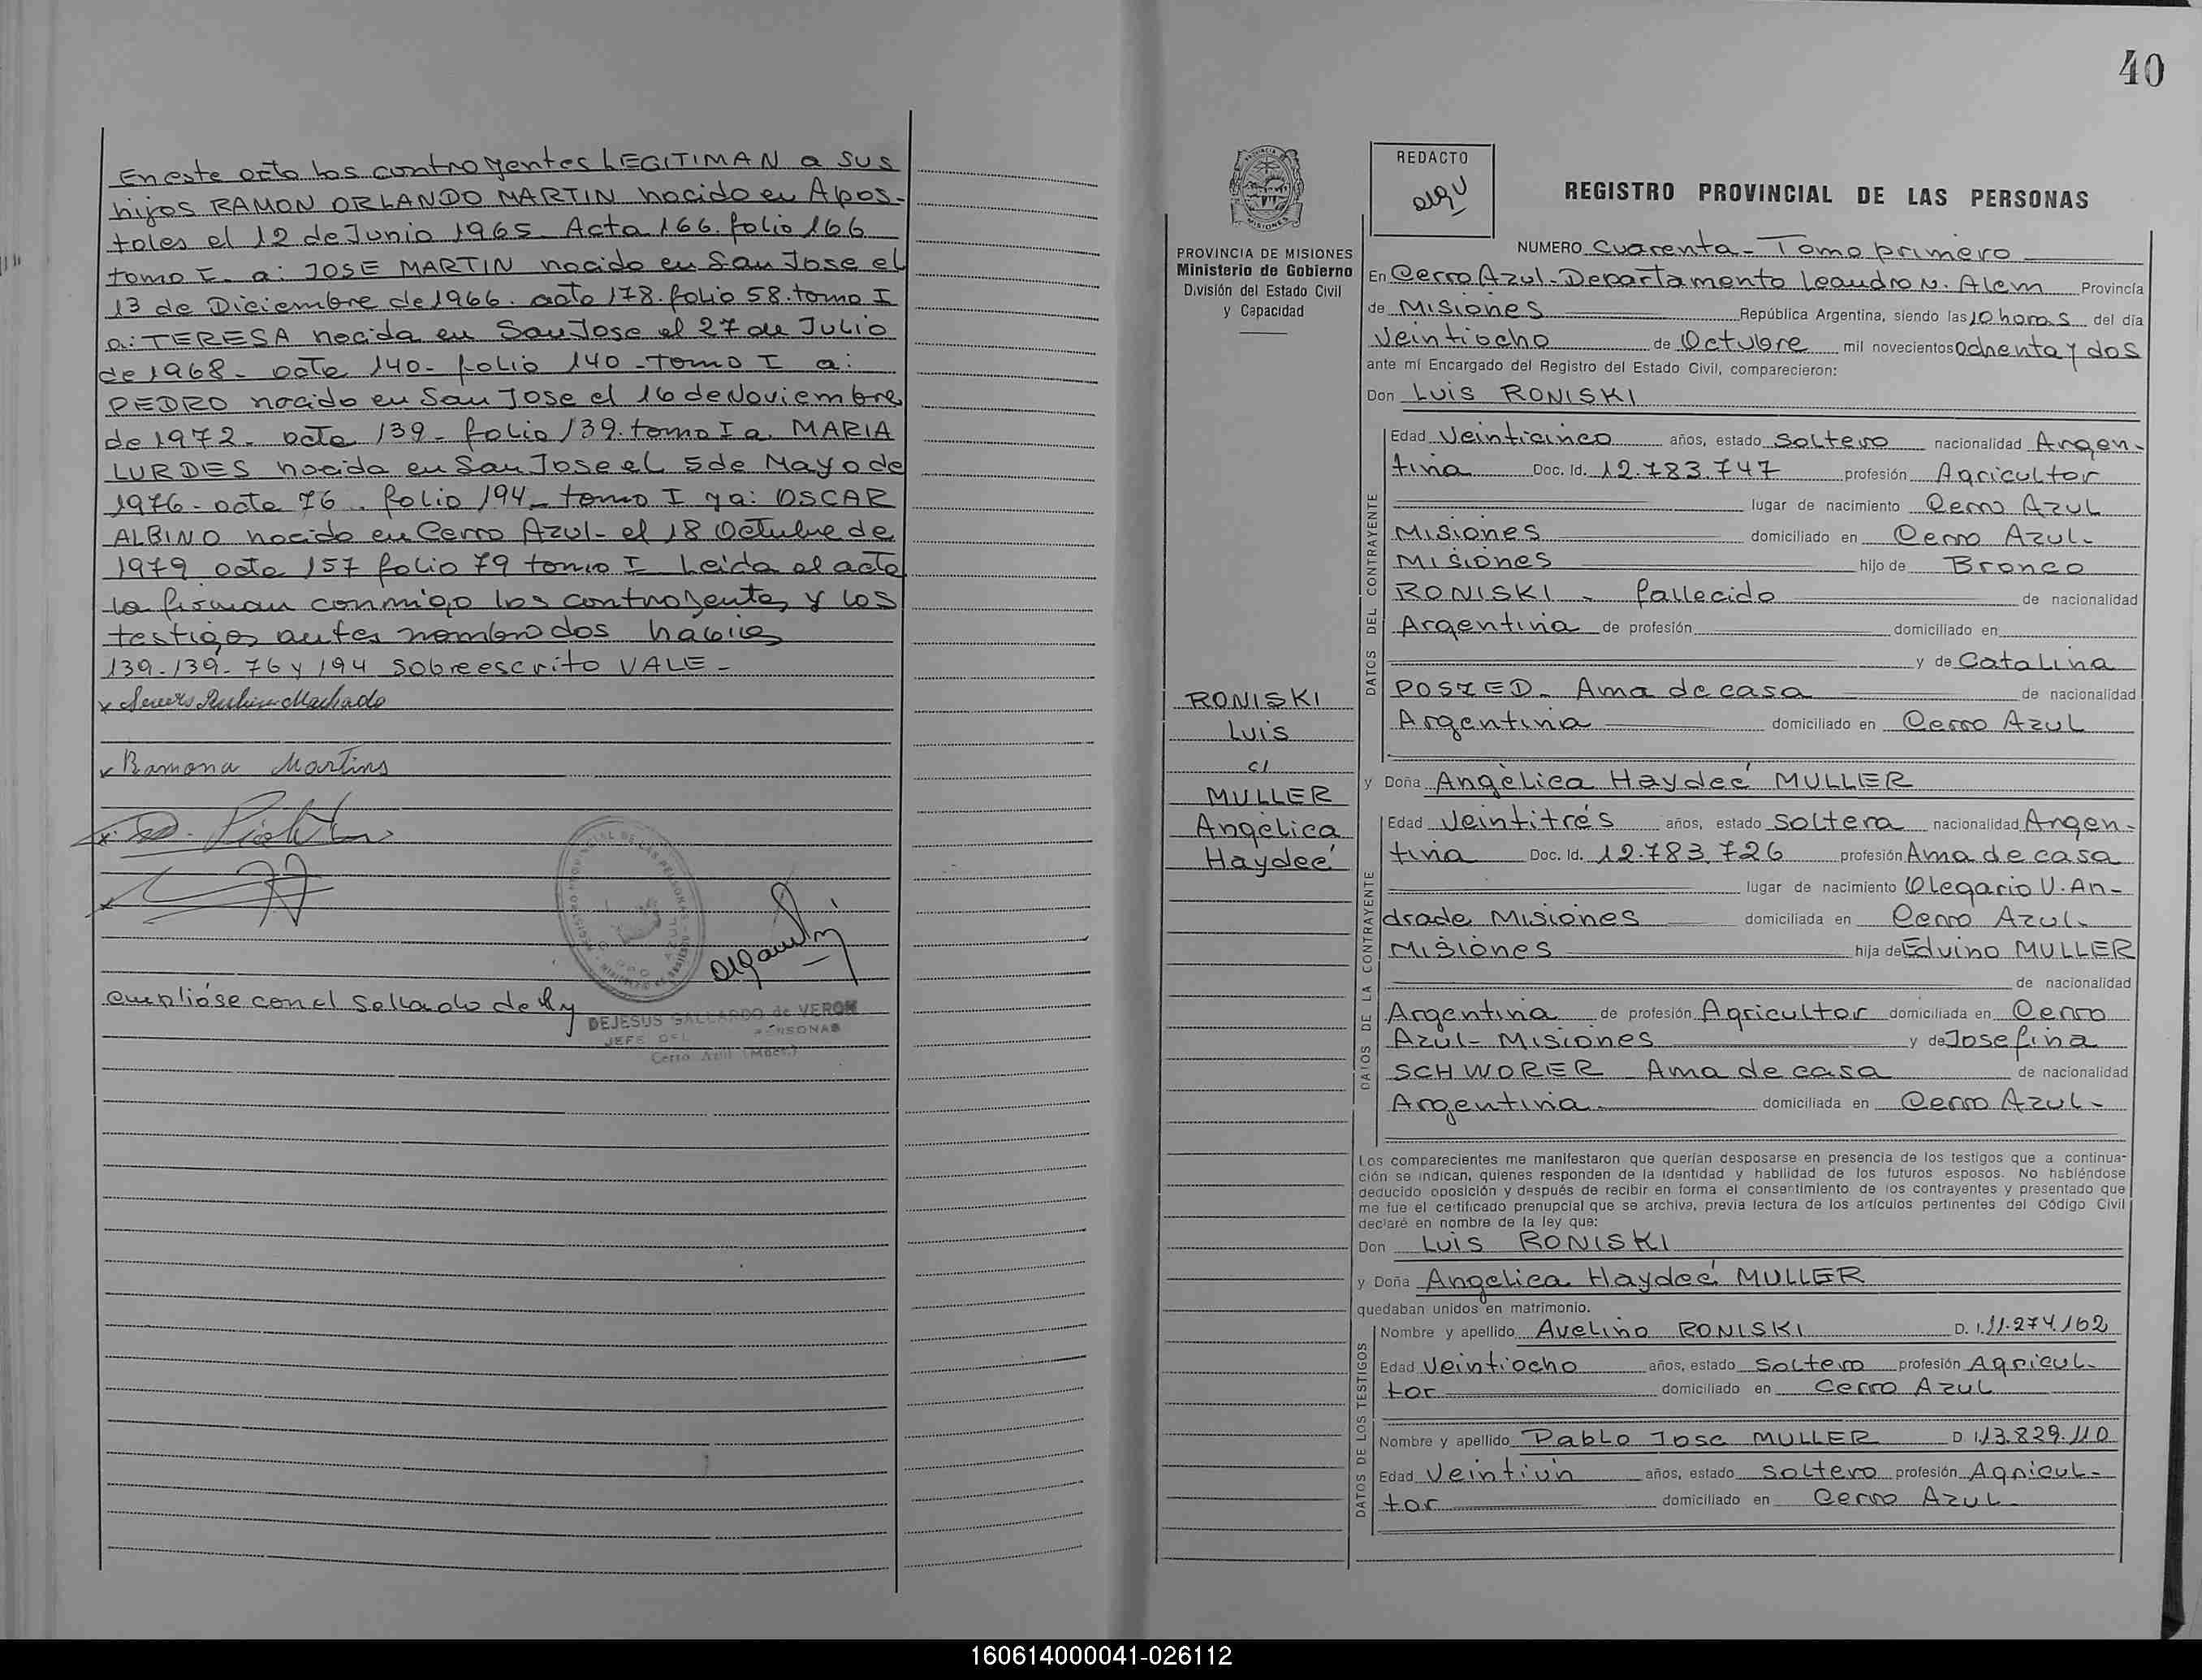 En este acto los contrayentes LEGITIMAN a sus
hijos RAMON ORLANDO MARTIN nacido en Apos-
toles el 12 de Junio 1965. Acta 166. folio 166
tomo I. a: JOSE MARTIN nacido en San Jose el
13 de Diciembre de 1966. acta 178. folio 58. tomo I
a: TERESA nacida en San Jose el 27 de Julio
de 1968 - acta 140 - folio 140 - Tomo I a:
PEDRO nacido en San Jose el 16 de Noviembre
de 1972 - acta 139 - folio 139. tomo I a. MARIA
LURDES nacida en San Jose el 5 de Mayo de
1976 - acta 76. folio 194 - tomo I y a: OSCAR
ALBINO nacido en Cerro Azul - el 18 Octubre de
1979 acta 157 folio 79 tomo I Leida el acta
la firman conmigo los contrayentes y los
testigos antes nombrados
139 - 139 - 76 y 194 Sobreescrito VALE -
x Machado
x Ramona Martins
cumplióse con el Sellado de ley
DEJESUS GALLARDO de VERON
JEFE DEL PERSONAS
Cerro Azul (Mnes.)
40
REDACTO
REGISTRO PROVINCIAL DE LAS PERSONAS
PROVINCIA DE MISIONES
Ministerio de Gobierno
División del Estado Civil
y Capacidad
NUMERO Cuarenta - Tomo primero
En Cerro Azul - Departamento Leandro N. Alem Provincia
de Misiones República Argentina, siendo las 10 horas del día
Veintiocho de Octubre mil novecientos Ochenta y dos
ante mí Encargado del Registro del Estado Civil, comparecieron:
Don Luis RONISKI
DATOS DEL CONTRAYENTE
Edad Veinticinco años, estado Soltero nacionalidad Argen-
tina Doc. Id. 12.783.747 profesión Agricultor
lugar de nacimiento Cerro Azul
Misiones domiciliado en Cerro Azul-
Misiones hijo de Bronco
RONISKI - fallecido de nacionalidad
Argentina de profesión domiciliado en
y de Catalina
POSZED - Ama de casa de nacionalidad
Argentina domiciliado en Cerro Azul
RONISKI
Luis
c/
MULLER
Angèlica
Haydeé
y Doña Angèlica Haydeé MULLER
DATOS DE LA CONTRAYENTE
Edad Veintitrés años, estado Soltera nacionalidad Argen-
tina Doc. Id. 12.783.726 profesión Ama de casa
lugar de nacimiento Olegario V. An-
drade Misiones domiciliada en Cerro Azul-
Misiones hija de Eduino MULLER
de nacionalidad
Argentina de profesión Agricultor domiciliada en Cerro
Azul - Misiones y de Josefina
SCHWORER - Ama de casa de nacionalidad
Argentina - domiciliada en Cerro Azul -
Los comparecientes me manifestaron que querían desposarse en presencia de los testigos que a continua-
ción se indican, quienes responden de la identidad y habilidad de los futuros esposos. No habiéndose
deducido oposición y después de recibir en forma el consentimiento de los contrayentes y presentado que
me fue el certificado prenupcial que se archiva, previa lectura de los artículos pertinentes del Código Civil
declaré en nombre de la ley que:
Don Luis RONISKI
y Doña Angelica Haydeé MULLER
quedaban unidos en matrimonio.
DATOS DE LOS TESTIGOS
Nombre y apellido Avelino RONISKI D. I. 11.274.162
Edad Veintiocho años, estado Soltero profesión Agricul-
tor domiciliado en Cerro Azul
Nombre y apellido Pablo Jose MULLER D I. 13.829.110
Edad Veintiún años, estado Soltero profesión Agricul-
tor domiciliado en Cerro Azul
160614000041-026112